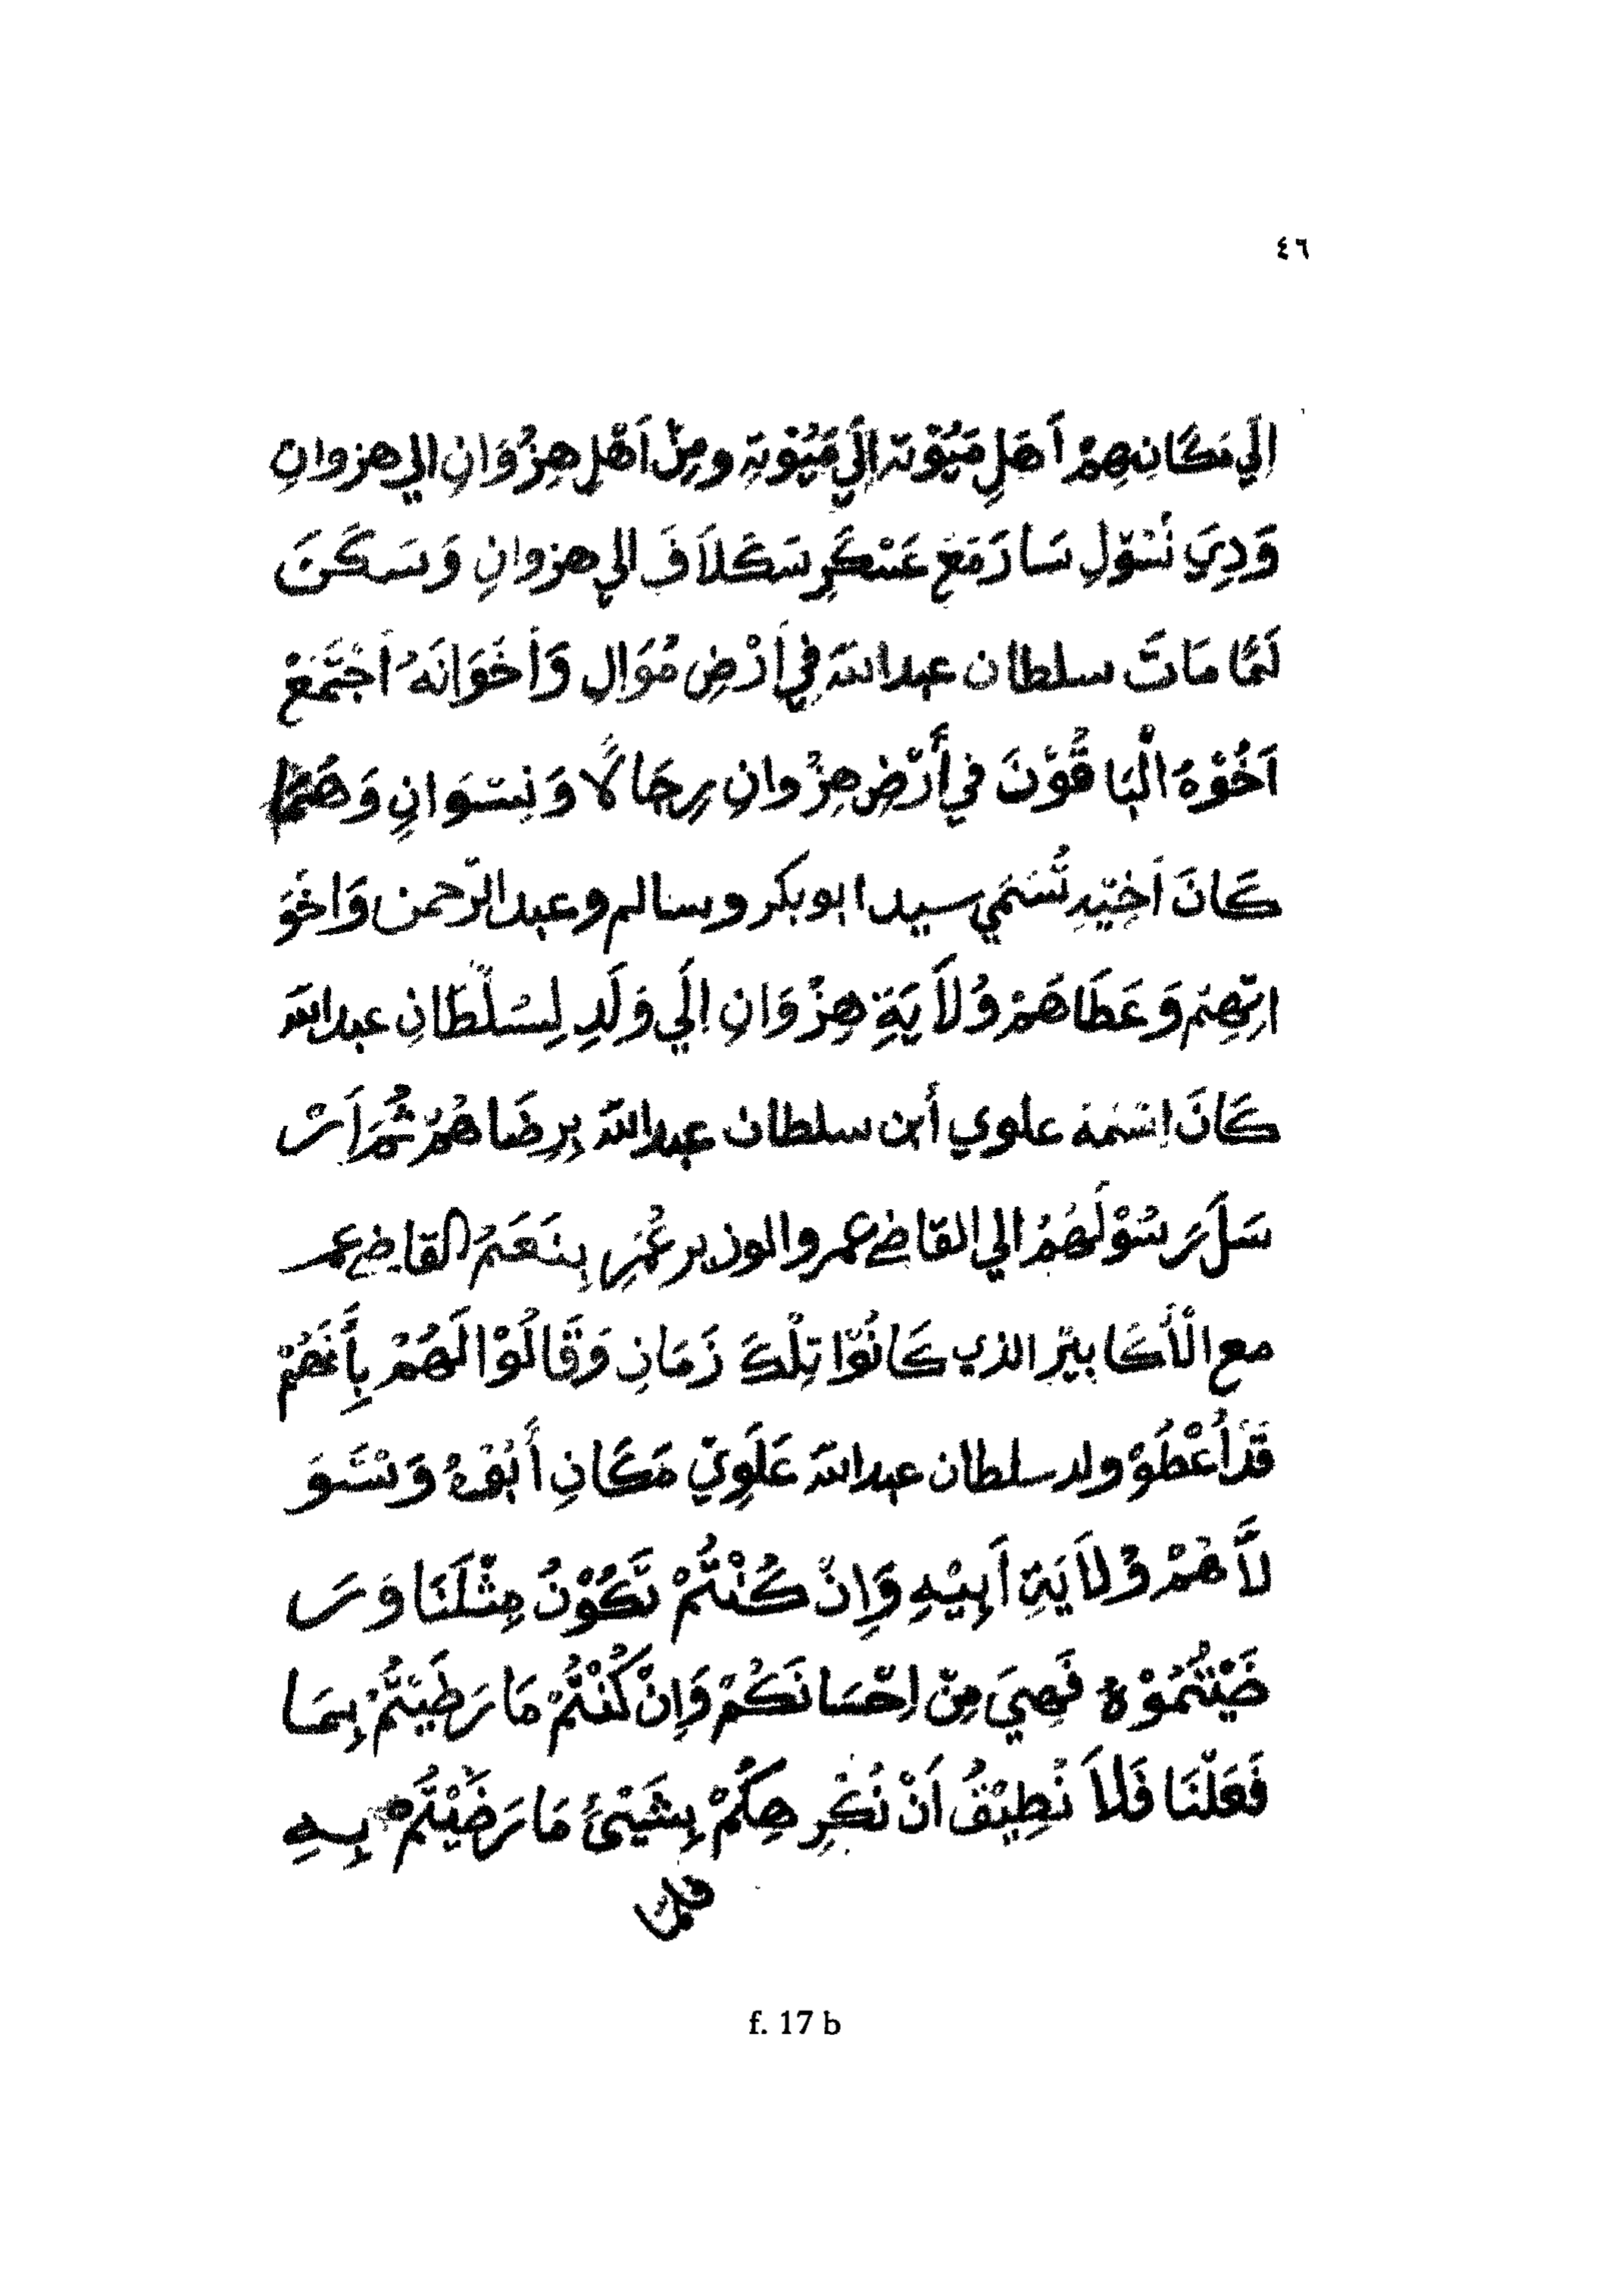 ٤٦
اِلَي مَكَانِهِمْ اَهَلِ مَيُوْتَة اِلَيَ مَيُوْتَةِ ومِنْ اَهْلِ هِزْوَانِ الي هزوانِ
وَدِيَ نُسَوّلِ سَارَ مَعَ عَسْكَرِ سَكَلَافَ الي هزوانِ وَسَكَنَ
لَمَّا مَاتَ سلطان عبدالله فِي اَرْضِ مُوَالِ وَاَخَوَانَهُ اَجْتَمَعْ
اَخُوْهُ الْبَاقُوْنَ في أَرْضِ هِزْوانِ رِجَالًا وَنِسَوَانٍ وَهَمَّا
كَانَ اَخِيْدِ تُسَمَي سيد ابوبكر وسالم وعبد الرّحمن وَاخَوَ
اتِهِمْ وَعَطَاهَمْ وُلَايَةِ هِزْوَانِ اِلَي وَلَدِ لِسُلْطَانِ عبدالله
كَانَ اِسْمَهُ علوي أبن سلطان عبدالله بِرِضَاهُمْ ثُمَّ اَرْ
سَلَ رَسُوْلَهُمْ الي القاضي عمر والوزير عُمَرِ بِنَعَمَ القاضي عمر
مع الْأَكَابِيْر الذي كَانُوْا تِلْكَ زَمَانِ وَقَالُوْا لَهُمْ بِأَنَّهُمْ
قَدْ اَعْطَوْ ولد سلطان عبدالله عَلَوِيّ مَكَانِ أَبُوْهُ وَسَّوَ
لَّاهُمْ وُلَايَةِ اَبِيْهِ وَاِنْ كُنْتُمْ تَكُوْنُ مِثْلَنَا وَرَ
ضَيْتُمُوْهُ فَهِيَ مِنْ اِحْسَانَكُمْ وَاِنْ كُنْتُمْ مَا رَطَيْتُمْ بِمَا
فَعَلْنَا فَلَا نُطِيْقُ اَنْ نُكْرِهِكُمْ بِشَيْئٍ مَا رَضَيْتُمْ بِهِ
f. 17 b